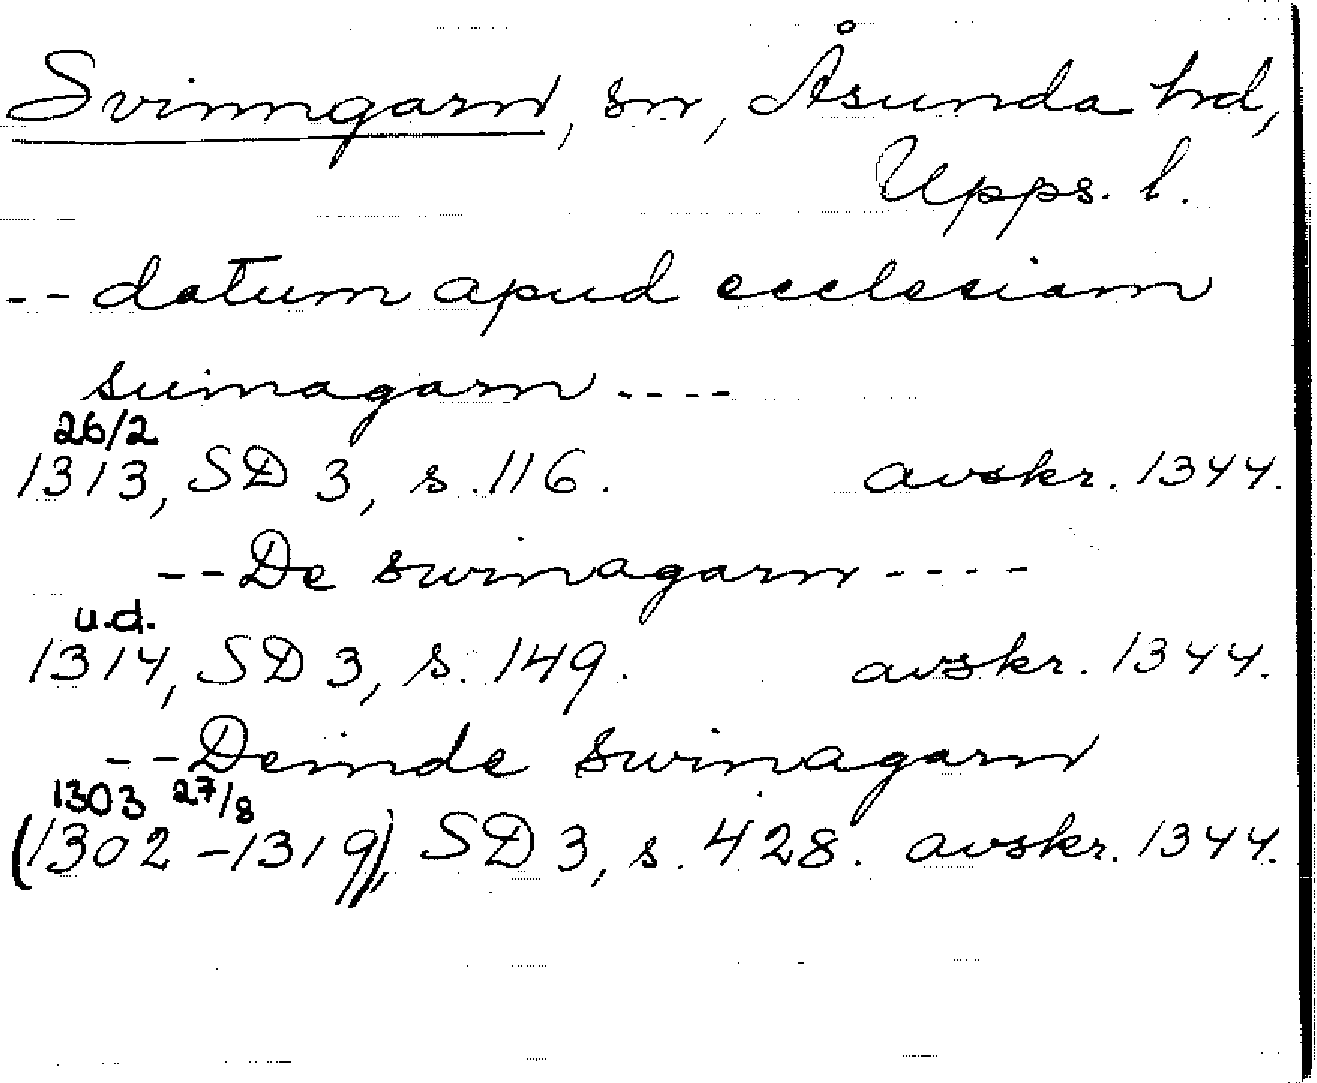 Svinngarn, sn, Åsunda hd,
Upps. l.
-- datum apud ecclesiam
suinagarn ----
26/2
1313, SD 3, s. 116. avskr. 1344.
-- De swinagarn ----
u.d.
1314, SD 3, s. 149. avskr. 1344.
-- Deinde swinagarn
1303 27/8
(1302-1319), SD 3, s. 428. avskr. 1344.